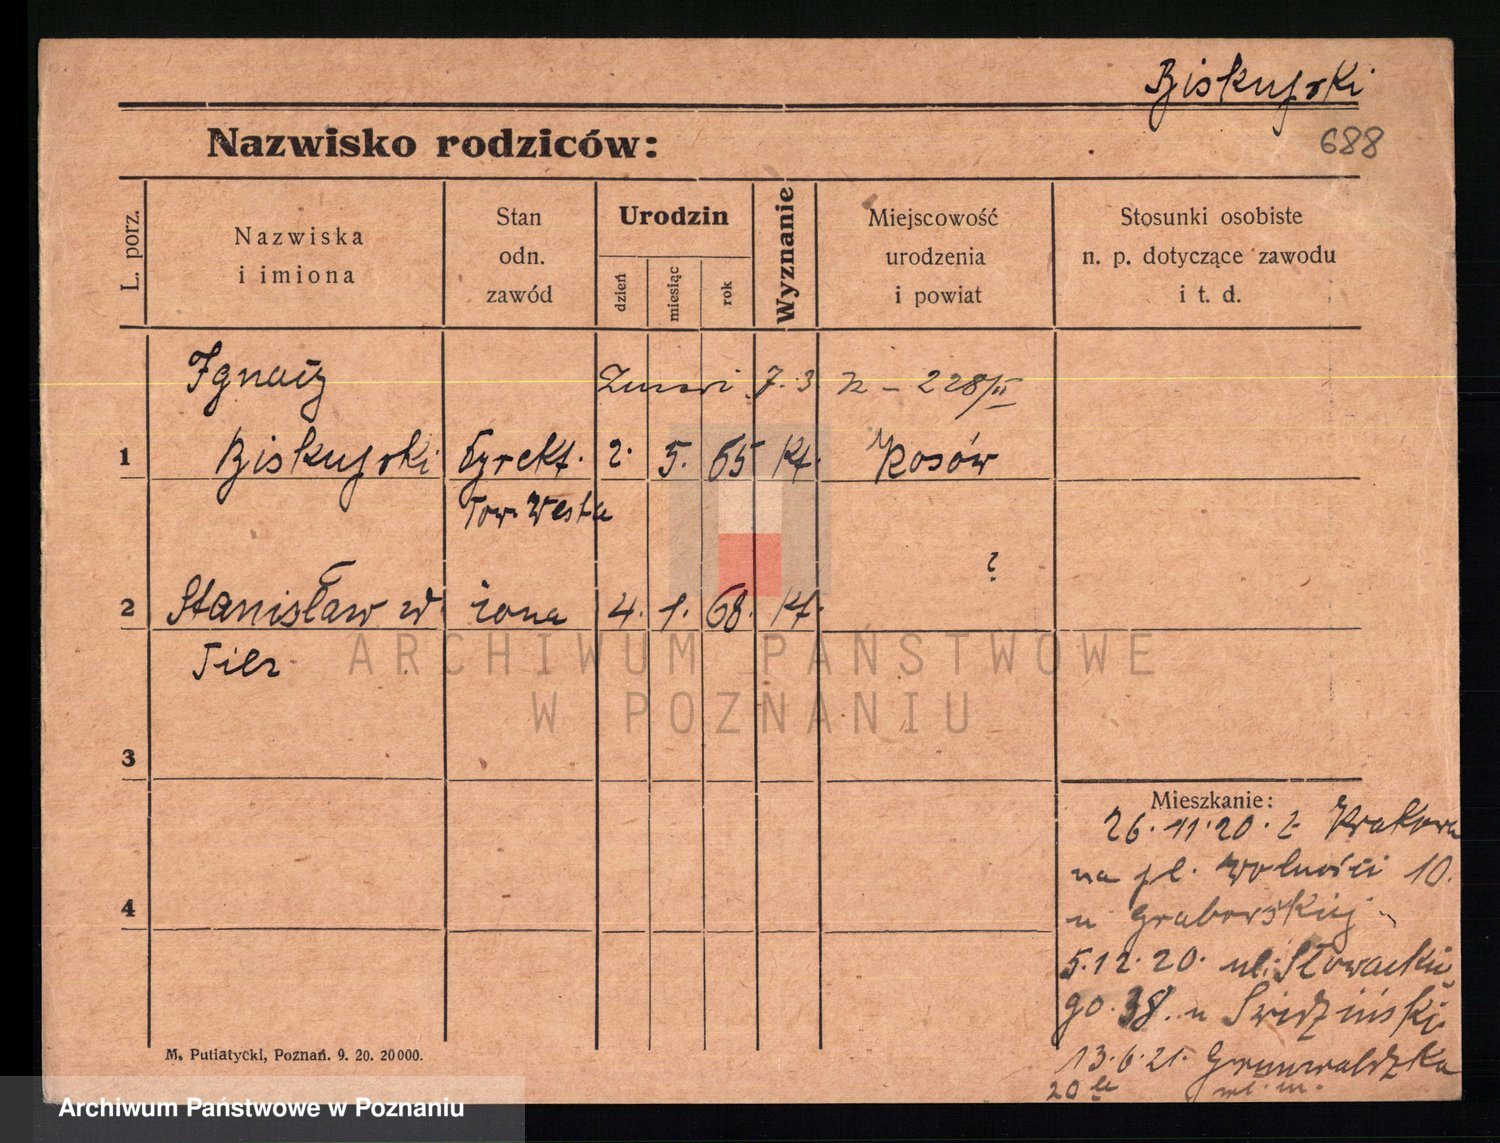 Biskupski
688
Nazwisko rodziców:
L. porz.
Nazwiska
i imiona
Stan
odn.
zawód
Urodzin
dzień
miesiąc
rok
Wyznanie
Miejscowość
urodzenia
i powiat
Stosunki osobiste
n. p. dotyczące zawodu
i t. d.
Ignacy
7. 3
228/II
1
Biskupski
Dyrekt.
2.
5.
65
Kt.
Kosów
Tow. Westa
?
2
Stanisław
żona
4.
1.
68.
Kt.
3
4
Mieszkanie:
26. 11. 20. z Krakowa
na pl. Wolności 10.
u Grabowskiej
5. 12. 20. ul. Słowackie
go. 38. u Swidzińskiej
13. 6. 21. Grunwaldzka
20
M. Putiatycki, Poznań. 9. 20. 20000.
ARCHIWUM PAŃSTWOWE
W POZNANIU
Archiwum Państwowe w Poznaniu